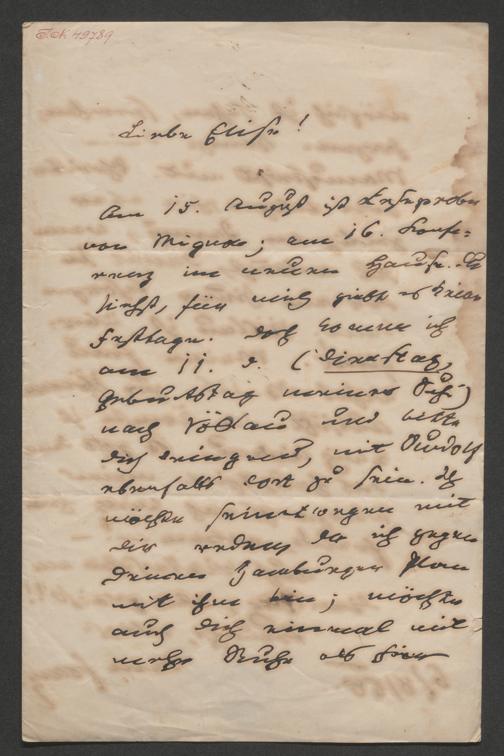 E.Ok 49789
Liebe Elise!
Am 15. August ist Leseprobe
von Mignon; am 16. Konfe-
renz im neuen Hause. Du
siehst, für mich giebt es keine
Festtage. Doch komme ich
am 11. d. (Dienstag,
Geburtstag meines
nach Vöslau und bitte
dich dringend, mit Rudolf
ebenfalls dort zu sein. Ich
möchte seinetwegen mit
dir reden, da ich gegen
Deinen Hamburger Plan
mit ihm bin; möchte
auch dich einmal mit
mehr Ruhe als hier